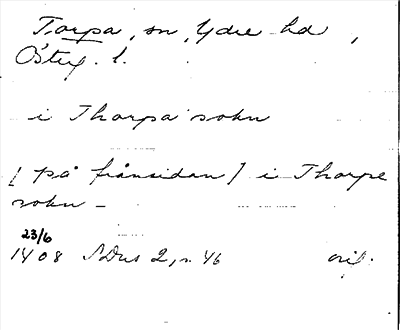 Torpa, sn, Ydre hd,
Östg. l.
i Thorpa sokn
[på frånsidan] i Thorpe
sokn -
23/6
1408 SDns 2, s. 46 orig.